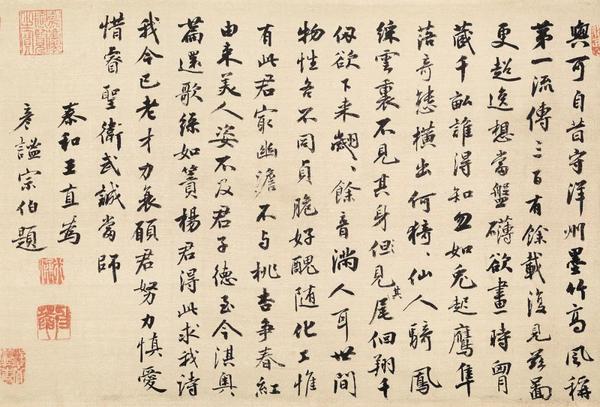 與可自昔守洋州墨竹高風稱
第一流傳三百有餘載復見茲圖
更超逸想當盤礴欲畫時胷
藏千畝誰得知忽如兔起鷹隼
落奇態橫出何猗〻仙人騎鳳
綵雲裏不見其身但見其尾佪翔千
仭欲下来翽〻餘音滿人耳世間
物性各不同貞脆好醜隨化工惟
有此君最幽澹不与桃杏爭春紅
由来美人姿不及君子德至今淇奧
篇還歌綠如簀楊君得此求我詩
我今已老才力衰願君努力慎愛
惜睿聖衛武誠當師
泰和王直為
彥謐宗伯題